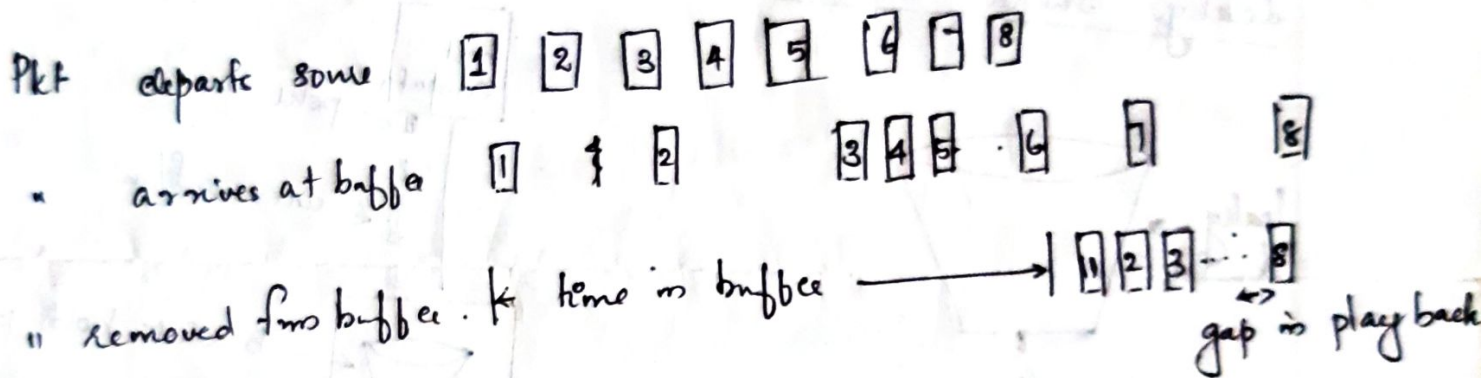 Pkt departs some 1 2 3 4 5 6 7 8
" arrives at buffer 1 2 3 4 5 6 7 8
" removed from buffer. time in buffer 1 2 3 .... 8
gap in play back